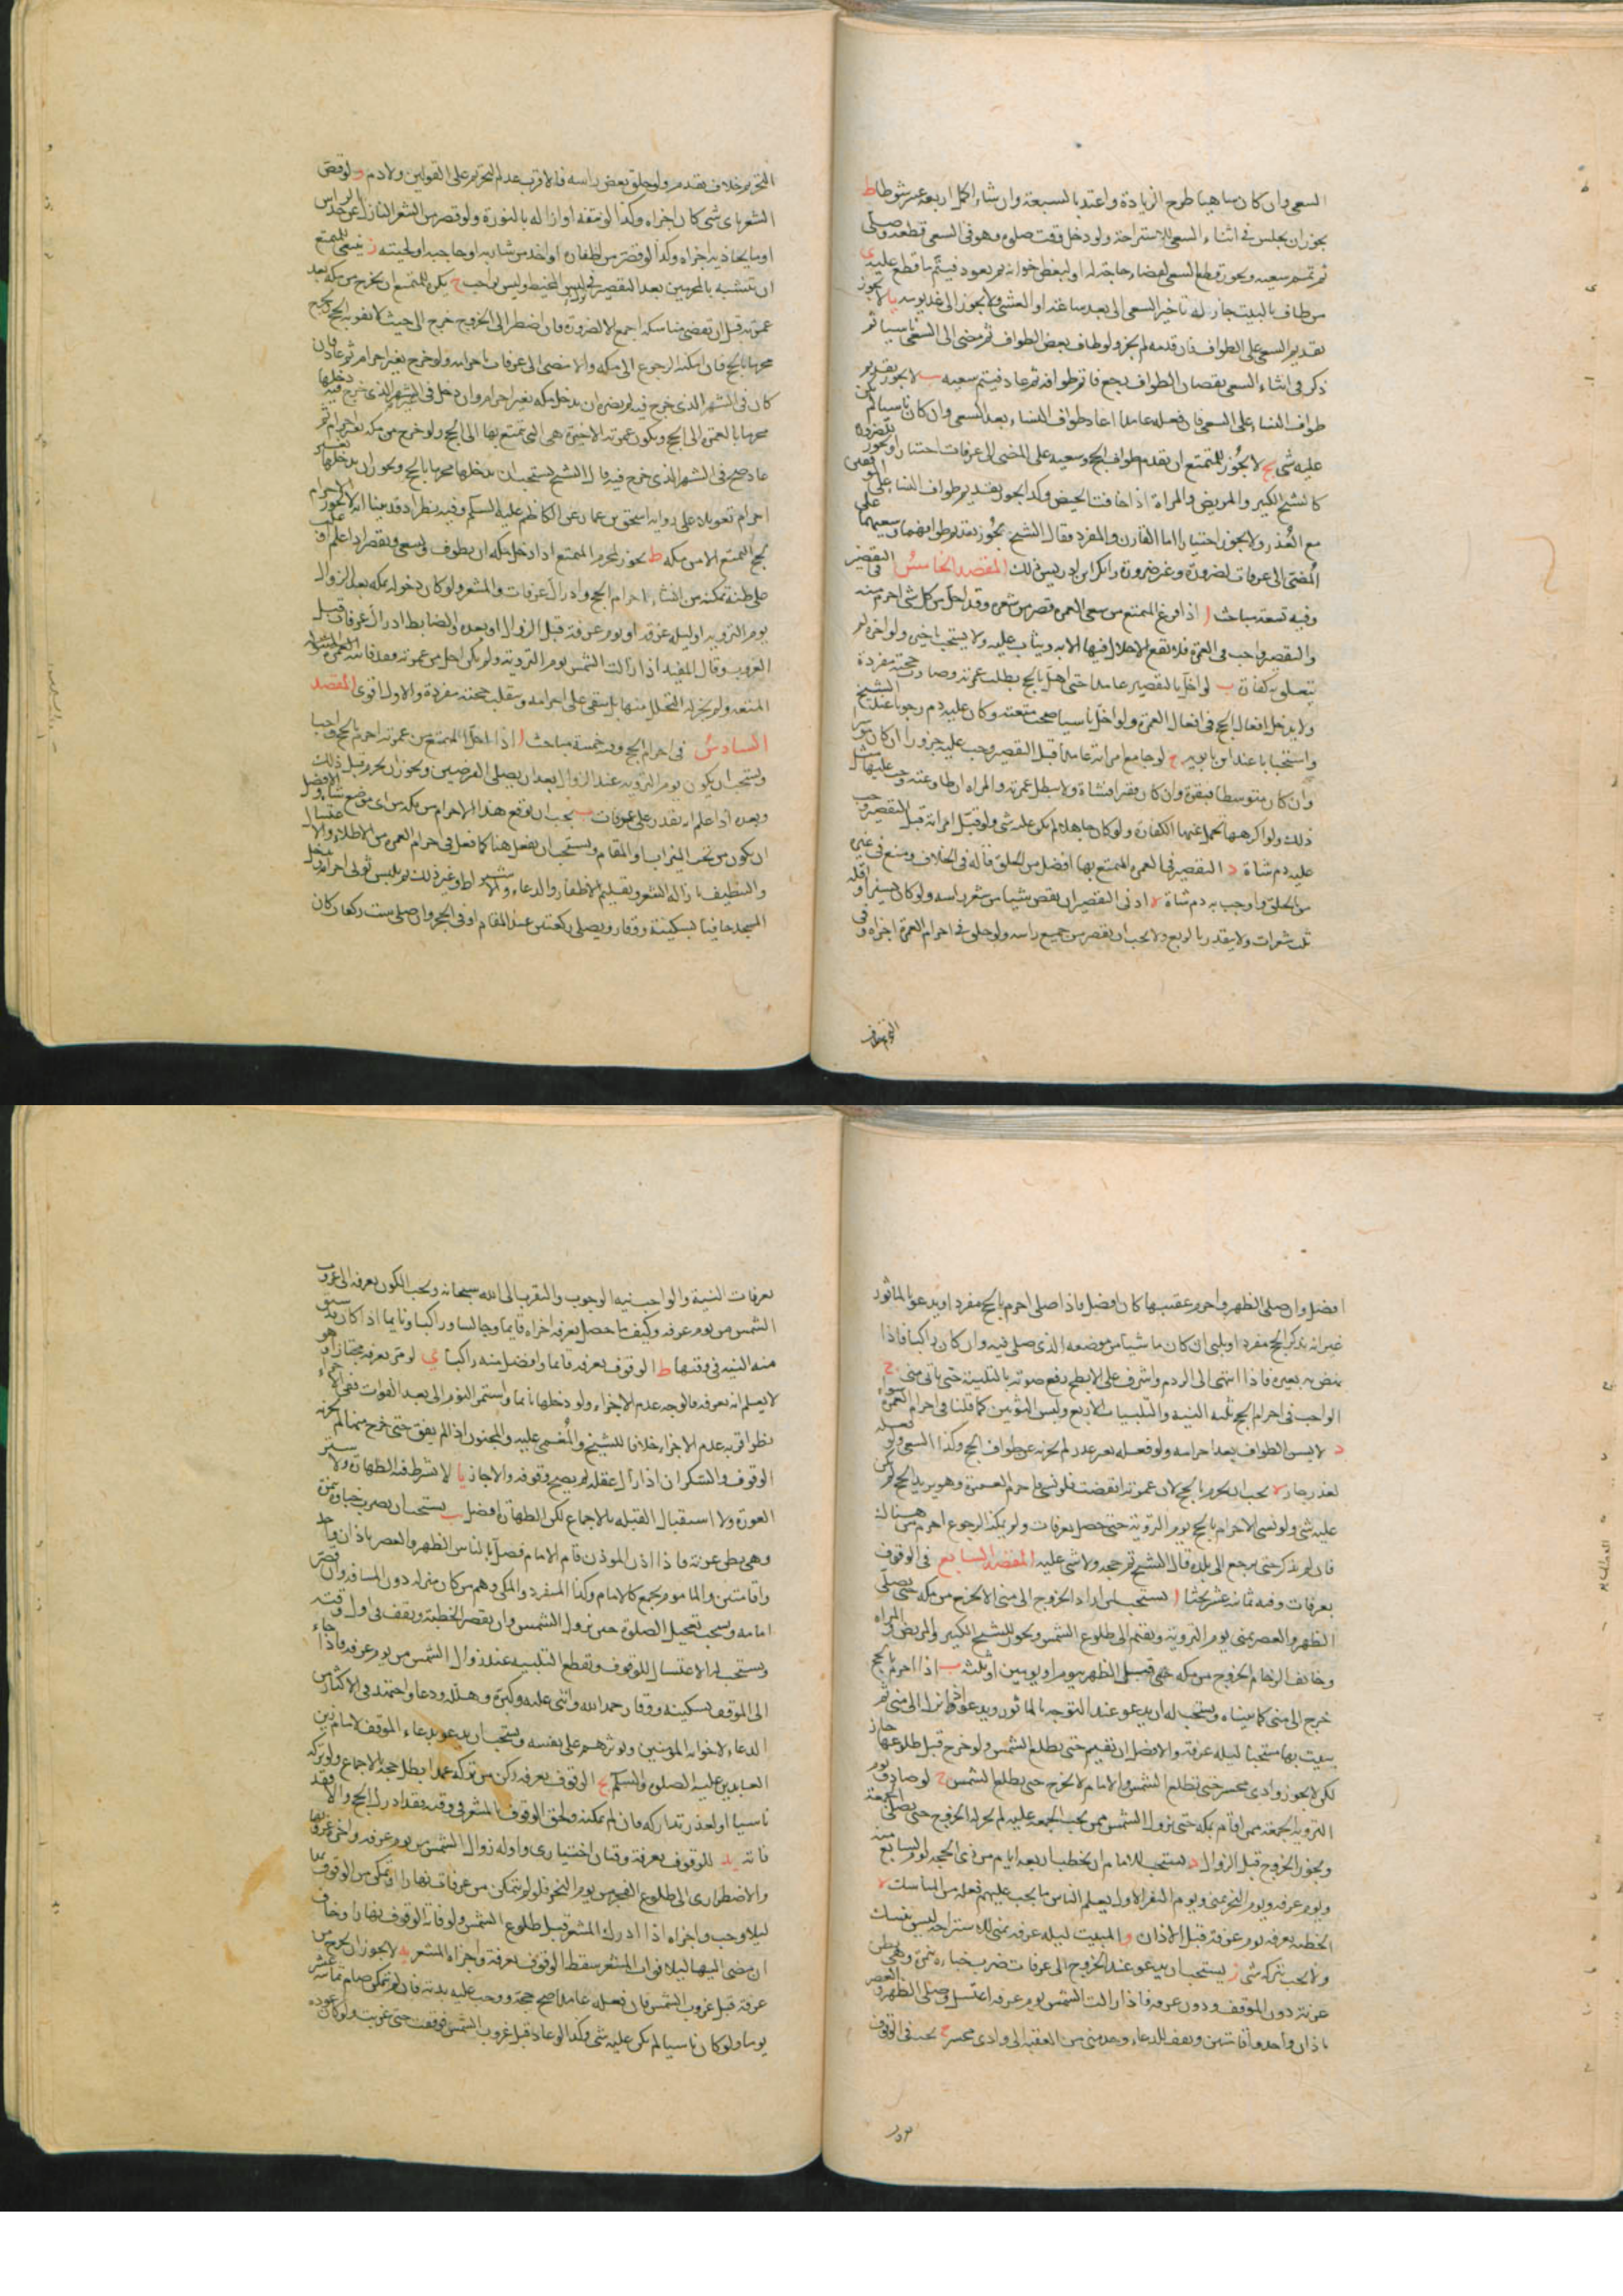 السعى وان كان ساهيا طرح الزيادة واعتد بالسبعة وان شاء اكمل اربعة عشر شوطا ط
يجوز ان يجلس فى اثناء السعى للاستراحة ولو دخل وقت صلوة وهو فى السعى قطعه وصلى
ثم تمم سعيه ويجوز قطع السعى لقضاء حاجة له او لبعض اخوانه ثم يعود فيتم ما قطع عليه ى
من طاف بالبيت جاز له تاخير السعى الى بعد ساعة او العشى ولا يجوز الى غد يومه يا لا يجوز
تقديم السعى على الطواف فان قدمه لم يجز ولو طاف بعض الطواف ثم مضى الى السعى ناسيا ثم
ذكر فى اثناء السعى نقصان الطواف رجع فاتم طوافه ثم عاد فيتم سعيه يب لا يجوز تقديم
طواف النساء على السعى فان فعله عامدا اعاد طواف النساء بعد السعى وان كان ناسيا لم يكن
عليه شى يج لا يجوز للمتمتع ان يقدم طواف الحج وسعيه على المضى الى عرفات اختيارا ويجوز للضرورة
كالشيخ الكبير والمريض والمراة اذا خافت الحيض وكذا يجوز تقديم طواف النساء على الموقفين
مع العذر ولا يجوز اختيارا اما القارن والمفرد فقال الشيخ يجوز تقديم طوافهما وسعيهما على
المضى الى عرفات لضرورة وغير ضرورة وانكر ابن ادريس ذلك المقصد الخامس فى التقصير
وفيه تسعة مباحث ا اذا فرغ المتمتع من سعى العمرة قصر من شعره وقد احل من كل شى احرم منه
والتقصير واجب فى العمرة فلا يقع الاحلال فيها الا به ويثاب عليه ولا يستحب تاخيره ولو اخره لم
يتعلق به كفارة ب لو اخل بالتقصير عامدا حتى اهل بالحج بطلت عمرته وصارت حجته مفردة
ولا يدخل افعال الحج فى افعال العمرة ولو اخل ناسيا صحت متعته وكان عليه دم وجوبا عند الشيخ
واستحبابا عند ابن بابويه ج لو جامع امراته عامدا قبل التقصير وجب عليه جزور ان كان موسرا
وان كان متوسطا فبقرة وان كان فقيرا فشاة ولا يبطل عمرته والمراة ان طاوعته وجب عليها مثل
ذلك ولو اكرهها تحمل عنها الكفارة ولو كان جاهلا لم يكن عليه شى ولو قبل امراته قبل التقصير وجب
عليه دم شاة د التقصير فى العمرة المتمتع بها افضل من الحلق قاله فى الخلاف ومنع فى غيره
من الحلق واوجب به دم شاة ه ادنى التقصير ان يقص شيئا من شعر راسه ولو كان يسيرا واقله
ثلث شعرات ولا يتقدر بالربع ولا يجب ان يقصر من جميع راسه ولو حلق فى احرام العمرة اجزاه وفى
التحريم خلاف تقدم ولو حلق بعض راسه فالاقرب عدم التحريم على القولين ولا دم و لو قص
الشعر باى شى كان اجزاه وكذا لو نتفه او ازاله بالنورة ولو قصر من الشعر النازل عن حد الراس
او ما يحاذيه اجزاه وكذا لو قصر من اظفاره او اخذ من شاربه او حاجبه او لحيته ز ينبغى للمتمتع
ان يتشبه بالمحرمين بعد التقصير فى لبس المخيط وليس بواجب ح يكره للمتمتع ان يخرج من مكة بعد
عمرته قبل ان تقضى مناسكه اجمع الا لضرورة فان اضطر الى الخروج خرج الى حيث لا يفوته الحج ويخرج
محرما بالحج فان امكنه الرجوع الى مكة والا مضى الى عرفات باحرامه ولو خرج بغير احرام ثم عاد فان
كان فى الشهر الذى خرج فيه لم يضره ان يدخل مكة بغير احرام وان دخل فى غير الشهر الذى خرج فيه دخلها
محرما بالعمرة الى الحج ويكون عمرته الاخيرة هى التى تمتع بها الى الحج ولو خرج من مكة بغير احرام ثم
عاد فى الشهر الذى خرج فيه قال الشيخ يستحب ان يدخلها محرما بالحج ويجوز ان يدخلها بغير
احرام تعويلا على رواية اسحق بن عمار عن الكاظم عليه السلم وفيه نظر اذ قد بينا انه لا يجوز الاحرام
بحج التمتع الا من مكة ط يجوز لمحرم المتمتع اذا دخل مكة ان يطوف ويسعى ويقصر اذا علم او غلب
على ظنه تمكنه من انشاء احرام الحج وادراك عرفات والمشعر ولو كان دخوله مكة بعد الزوال
يوم التروية او ليلة عرفة او يوم عرفة قبل الزوال او بعده والضابط ادراك عرفات قبل
الغروب وقال المفيد اذا زالت الشمس يوم التروية ولم يكن احل من عمرته فقد فاتته
المتعة ولم يجز له التحلل منها بل يبقى على احرامه وتنقلب حجته مفردة والاول اقوى المقصد
السادس فى احرام الحج وفيه خمسة مباحث ا اذا احل المتمتع من عمرته احرم بالحج واجبا
ويستحب ان يكون يوم التروية عند الزوال بعد ان يصلى الفرضين ويجوز ان يحرم قبل ذلك
وبعده اذا علم انه يقدر على عرفات ب يجب ان يوقع هذا الاحرام من مكة من اى موضع شاء والافضل
ان يكون من تحت الميزاب او المقام ويستحب ان يفعل هنا كما فعل فى احرام العمرة من الاطلاء والاغتسال
والتنظيف بازالة الشعر وتقليم الاظفار والدعاء والاشتراط وغير ذلك ثم يلبس ثوبى احرامه ويدخل
المسجد حافيا بسكينة ووقار ويصلى ركعتين عند المقام او فى الحجر وان صلى ست ركعات كان
افضل وان صلى الظهر واحرم عقيبها كان افضل فاذا صلى احرم بالحج مفردا ويدعو بالماثور
غير انه يذكر الحج مفردا ويلبى ان كان ماشيا من موضعه الذى صلى فيه وان كان راكبا فاذا
نهض به بعيره فاذا انتهى الى الردم واشرف على الابطح رفع صوته بالتلبية حتى ياتى منى ج
الواجب فى احرام الحج ثلثة النية والتلبيات الاربع ولبس الثوبين كما قلنا فى احرام العمرة سواء
د لا يسن الطواف بعد احرامه ولو فعله بغير عذر لم يجزه عن طواف الحج وكذا السعى ولو فعله
لعذر جاز ه يجب ان يحرم بالحج لان عمرته انقضت فلو نسى واحرم بالعمرة وهو يريد الحج لم يكن
عليه شى ولو نسى الاحرام بالحج يوم التروية حتى حصل بعرفات ولم يمكنه الرجوع احرم من هناك
فان لم يذكر حتى يرجع الى بلده قال الشيخ تم حجه ولا شى عليه المقصد السابع فى الوقوف
بعرفات وفيه ثمانية عشر بحثا ا يستحب لمن اراد الخروج الى منى الا يخرج من مكة حتى يصلى
الظهر والعصر بمنى يوم التروية ويقيم الى طلوع الشمس ويجوز للشيخ الكبير والمريض والمراة
وخائف الزحام الخروج من مكة قبل الظهر بيوم او يومين او ثلثة ب اذا احرم بالحج
خرج الى منى كما بيناه ويستحب له ان يدعو عند التوجه بالماثور ويدعو اذا نزل الى منى ثم
يبيت بها مستحبا ليلة عرفة والافضل ان يقيم حتى يطلع الشمس ولو خرج قبل طلوعها جاز
لكن لا يجوز وادى محسر حتى تطلع الشمس والامام لا يخرج حتى يطلع الشمس ج لو صادف يوم
التروية الجمعة فمن اقام بمكة حتى يزول الشمس ممن يجب الجمعة عليه لم يجز له الخروج حتى يصلى الجمعة
ويجوز الخروج قبل الزوال د يستحب للامام ان يخطب اربعة ايام من ذى الحجة يوم السابع منه
ويوم عرفة ويوم النحر بمنى ويوم النفر الاول يعلم الناس ما يجب عليهم فعله من المناسك ه
الخطبة بعرفة يوم عرفة قبل الاذان و المبيت ليلة عرفة بمنى للاستراحة ليس بنسك
ولا يجب بتركه شى ز يستحب ان يدعو عند الخروج الى عرفات ضرب خباءه بنمرة وهى بطن
عرنة دون الموقف ودون عرفة فاذا زالت الشمس يوم عرفة اغتسل وصلى الظهر والعصر
باذان واحد واقامتين ويقف للدعاء وحد منى من العقبة الى وادى محسر ح يجب فى الوقوف
بعرفات النية والواجب نية الوجوب والتقرب الى الله سبحانه ويجب الكون بعرفة الى غروب
الشمس من يوم عرفة وكيف ما حصل بعرفة اجزاه قايما وجالسا وراكبا ونايما اذا كان قد سبق
منه النية فى وقتها ط الوقوف بعرفة قايما وافضل منه راكبا ى لو مر بعرفة مجتازا وهو
لا يعلم انه بعرفة فالوجه عدم الاجزاء ولو دخلها نايما واستمر النوم الى بعد الفوات ففى الاجزاء
نظر اقربه عدم الاجزاء خلافا للشيخ والمغمى عليه والمجنون اذا لم يفق حتى خرج منها لم يجزه
الوقوف والسكران اذا زال عقله لم يصح وقوفه والا جاز يا لا يشترط فيه الطهارة ولا ستر
العورة ولا استقبال القبلة بالاجماع لكن الطهارة افضل يب يستحب ان يضرب خباءه بنمرة
وهى بطن عرنة فاذا اذن الموذن قام الامام فصلى بالناس الظهر والعصر باذان واحد
واقامتين والماموم يجمع كالامام وكذا المنفرد والمكى ومن كان منزله دون المسافة وان قصر
امامه ويستحب تعجيل الصلوة حين تزول الشمس وان يقصر الخطبة ويقف فى اول وقته
ويستحب له الاغتسال للوقوف ويقطع التلبية عند زوال الشمس من يوم عرفة فاذا جاء
الى الموقف بسكينة ووقار حمد الله واثنى عليه وكبره وهلله ودعا واجتهد فى الاكثار من
الدعاء لاخوانه المؤمنين ويؤثرهم على نفسه ويستحب ان يدعو بدعاء الموقف للامام زين
العابدين عليه الصلوة والسلم يج الوقوف بعرفة ركن من تركه عمدا بطل حجه بالاجماع ولو تركه
ناسيا او لعذر تداركه فان لم يمكنه ولحق الوقوف بالمشعر فى وقته فقد ادرك الحج والا فقد
فاته يد للوقوف بعرفة وقتان اختيارى واوله زوال الشمس من يوم عرفة واخره غروبها
والاضطرارى الى طلوع الفجر من يوم النحر فلو لم يتمكن من عرفات نهارا وتمكن من الوقوف بها
ليلا وجب واجزاه اذا ادرك المشعر قبل طلوع الشمس ولو فاته الوقوف نهارا وخاف
ان مضى اليها ليلا فوات المشعر سقط الوقوف بعرفة واجزاه المشعر يه لا يجوز ان يخرج من
عرفة قبل غروب الشمس فان فعله عامدا صح حجه ووجب عليه بدنة فان لم يتمكن صام ثمانية عشر
يوما ولو كان ناسيا لم يكن عليه شى وكذا لو عاد قبل غروب الشمس فوقف حتى غربت ولو كان عوده